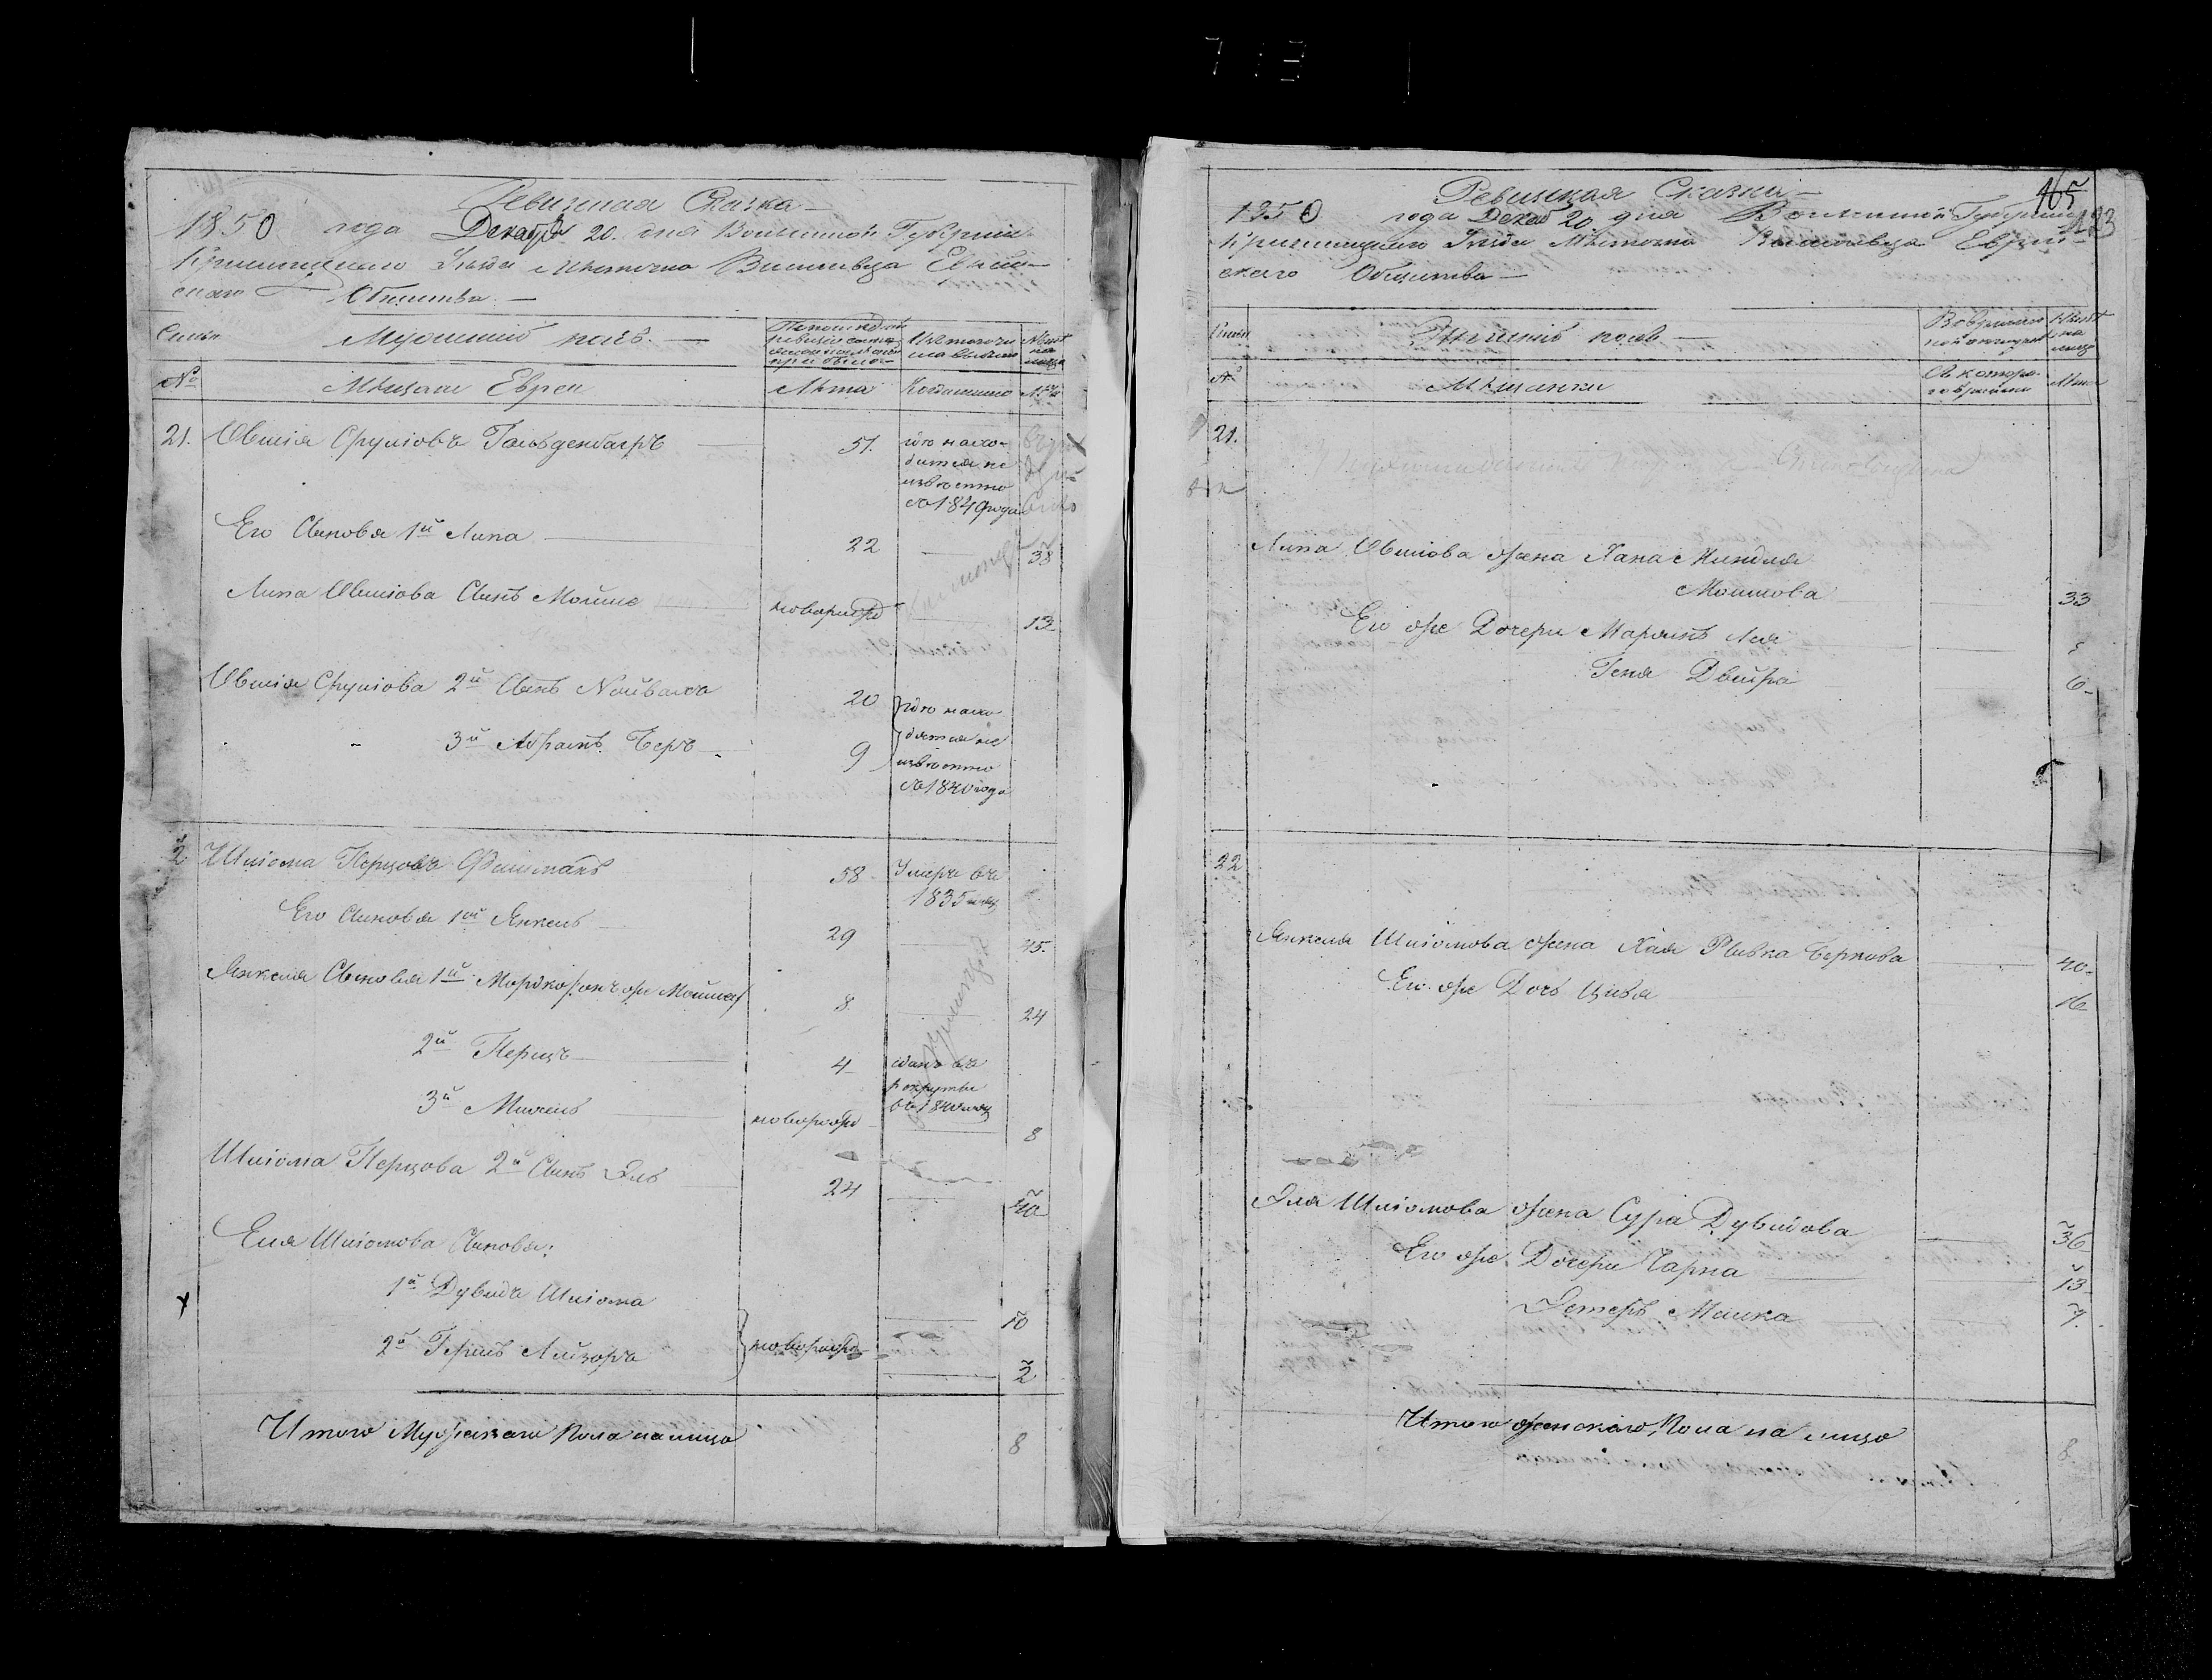 Ревизская Сказка
1850 года Декабря 20 дня Волынской Губернии
Кременецкаго Уезда Местечка Вишневца Еврей-
скаго Общества
Семьи
Мужеский полъ.
Изъ того числа выбыло
Ныне на лицо
№
Мещане Евреи
Лета
Когда именно
Лета
21. Овшія Сруліовъ Гольденбергъ 51. где нахо-
дится не
известно
съ 1849 года
Его Сыновья 1й Липа 22 38
Липа Овшіова Сынъ Мошко новорожд 13
Овшія Сруліова 2й Сынъ 20 где нахо
дятся не
3й Абрамъ Беръ 9 известно
съ 1840 года
22 Шліома Перцовъ Фишманъ 58 Умеръ въ
1835 году
Его Сыновья 1й Янкель 29 45.
Янкеля Сыновья 1й Мордко /онъ же Мошко/ 8 24
2й Перецъ 4 сданъ въ
рекруты
въ 1840 году
3й Михель новорожд 8
Шліома Перцова 2й Сынъ Эль 24 40
Еля Шліомова Сыновья:
1й Дувидъ Шліома 10
2й Гершъ Лейзоръ новорожд 2
Итого Мужескаго Пола на лицо 8
165
Ревизская Сказка
1850 года Декаб 20 дня Волынской Губерніи
Кременецкаго Уезда Местечка Вишневца Еврей-
скаго Общества
Семьи
Женскій полъ
Ныне на лицо
№
Мещанки
Лета
21.
Липа Овшіова жена Хана Миндля
Мошкова 33
Его же Дочери Марьямъ Лея
Геня Двойра 6
22
Янкеля Шліомова жена Хая Ривка Беркова 40
Его же Дочь Цивья 16
Эля Шліомова жена Сура Дувидова 36
Его же Дочери Чарна 13
Эстеръ Малка 7
Итого женскаго Пола на лицо 8